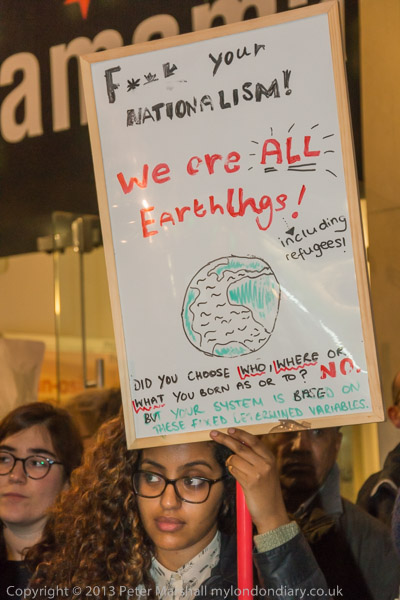 amami
F**k your
NATIONALISM!
We are ALL
Earthlings!
including
refugees!
DID YOU CHOOSE WHO, WHERE OR
WHAT YOU BORN AS OR TO? NO.
BUT YOUR SYSTEM IS BASED ON
THESE FIXED DETERMINED VARIABLES.
Copyright © 2013 Peter Marshall mylondondiary.co.uk